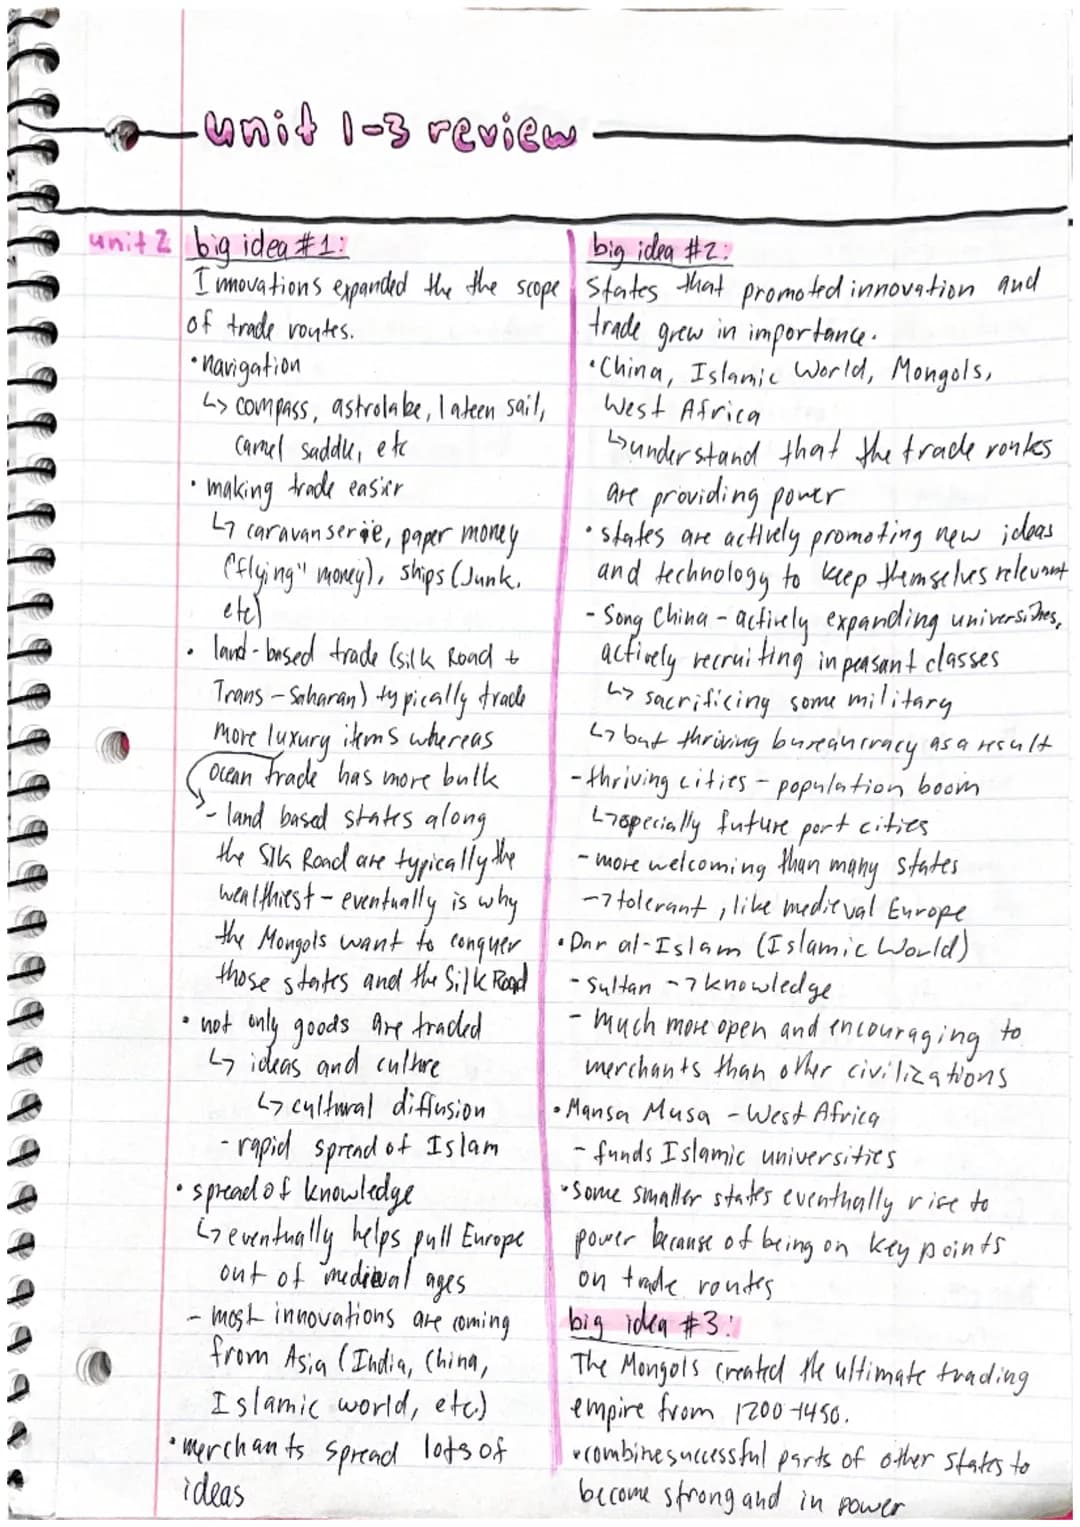 unit 1-3 review
unit 2
big idea #1:
Innovations expanded the the scope
of trade routes.
• navigation
↳ compass, astrolabe, lateen sail,
camel saddle, etc
• making trade easier
↳ caravanserie, paper money
("flying" money), ships (Junk,
etc)
• land-based trade (silk Road +
Trans-Saharan) typically trade
more luxury items whereas
ocean trade has more bulk
- land based states along
the Silk Road are typically the
wealthiest - eventually is why
the Mongols want to conquer
those states and the Silk Road
• not only goods are traded
↳ ideas and culture
↳ cultural diffusion
- rapid spread of Islam
• spread of knowledge
↳ eventually helps pull Europe
out of medieval ages
- most innovations are coming
from Asia (India, China,
Islamic world, etc)
• merchants spread lots of
ideas
big idea #2:
States that promoted innovation and
trade grew in importance.
• China, Islamic World, Mongols,
West Africa
↳ understand that the trade routes
are providing power
• states are actively promoting new ideas
and technology to keep themselves relevant
- Song China - actively expanding universities,
actively recruiting in peasant classes
↳ sacrificing some military
↳ but thriving bureaucracy as a result
- thriving cities - population boom
↳ especially future port cities
- more welcoming than many states
-> tolerant, like medieval Europe
• Dar al-Islam (Islamic World)
- sultan -> knowledge
- Much more open and encouraging to
merchants than other civilizations
• Mansa Musa - West Africa
- funds Islamic universities
• Some smaller states eventually rise to
power because of being on key points
on trade routes
big idea #3:
The Mongols created the ultimate trading
empire from 1200-1450.
• combine successful parts of other states to
become strong and in power